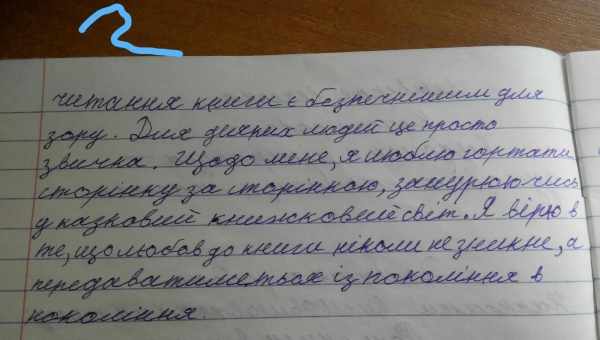 2
читання книги є безпечнішим для
зору. Для деяких людей це просто
звичка. Щодо мене, я люблю гортати
сторінку за сторінкою, занурюючись
у казковий книжковий світ. Я вірю в
те, що любов до книги ніколи не зникне, а
передаватиметься із покоління в
покоління.